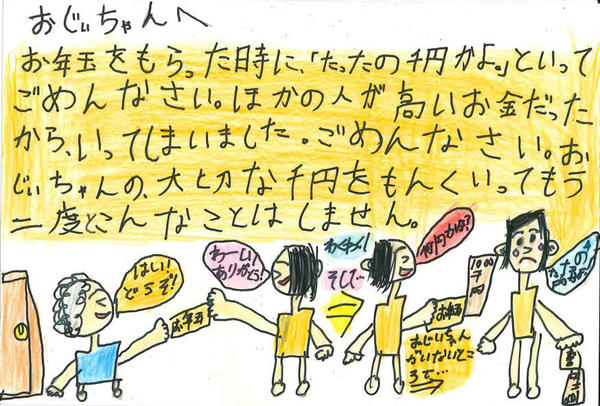 おじぃちゃんへ
お年玉をもらった時に、「たったの千円かよ。」といって
ごめんなさい。ほかの人が高いお金だった
から、いってしまいました。ごめんなさい。お
じぃちゃんの、大切な千円をもんくいってもう
二度とこんなことはしません。
はい!
どうぞ!
お年玉
わーい!
ありがとう!
わくわく!
そして…
何円かな?
お年玉
おじいちゃん
がいないとこ
ろで…
1000
千円
たったの千
円かよ…